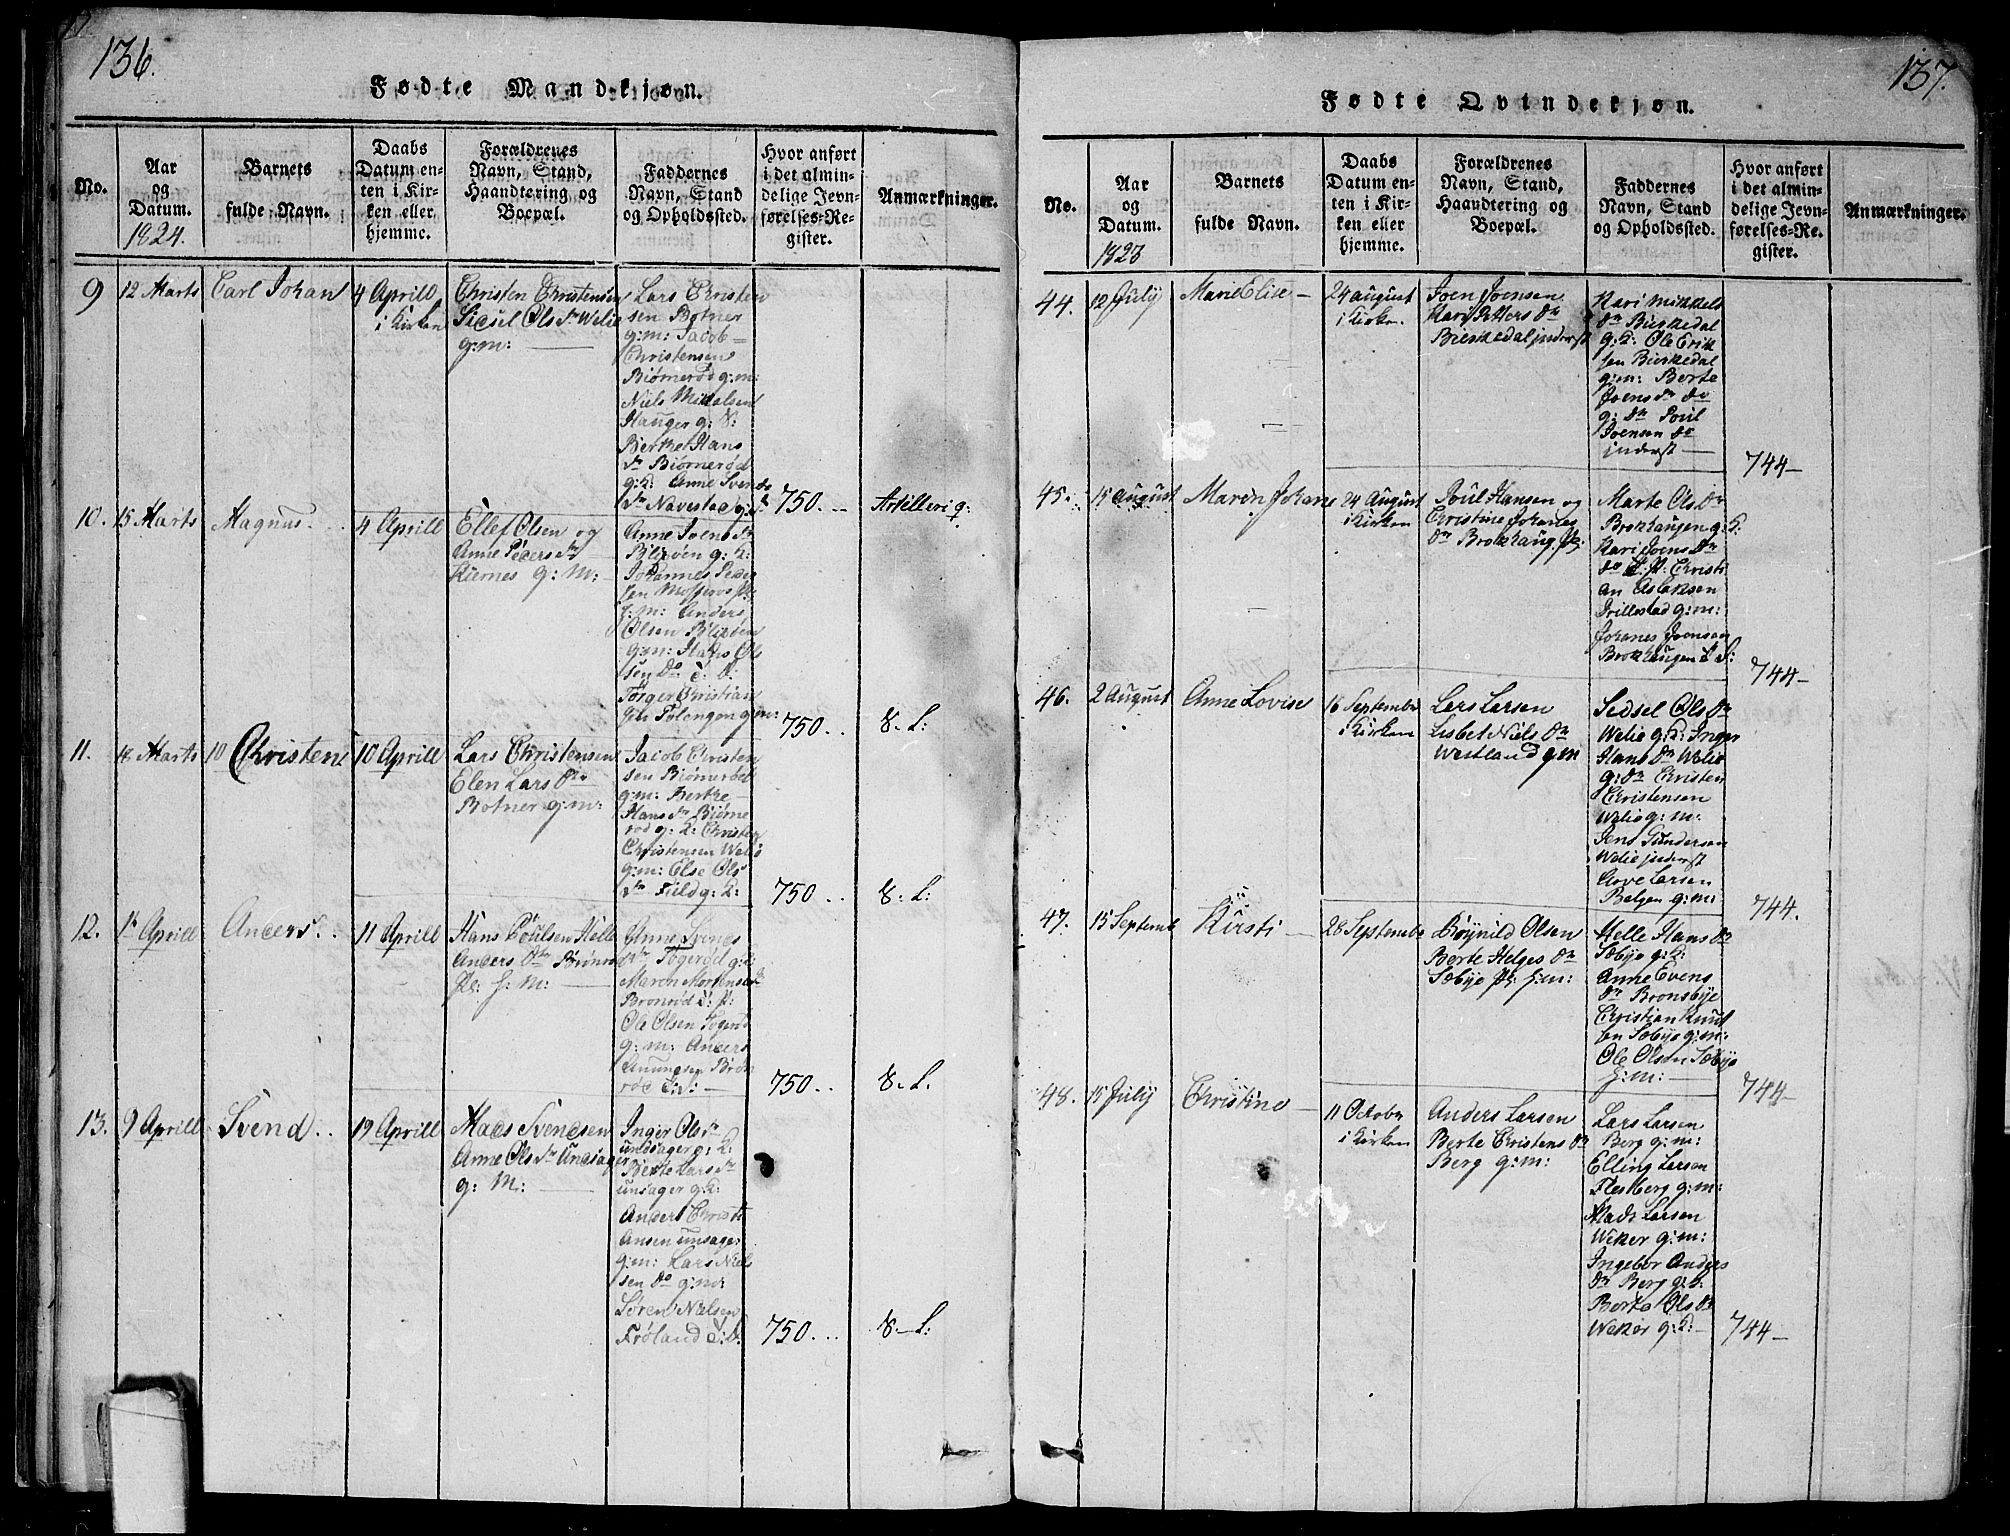 136.
Fødte Mandkjøn.
No.
Aar
og
Datum.
1824.
Barnets
fulde Navn.
Daabs
Datum en-
ten i Kir-
ken eller
hjemme.
Forældrenes
Navn, Stand,
Haandtering og
Boepæl.
Faddernes
Navn, Stand
og Opholdssted.
Hvor anført
i det almin-
delige Jevn-
førelses-Re-
gister.
Anmærkninger.
9
12 Marts
Carl Johan
4 Aprill
i Kirken
Christen Christensen
Sidsel Ols Dr Welie
g:m:
Lars Christen
sen Botner
g:m: Jacob
Christensen
Biørnerød g:m:
Niels Mikkelsen
Hauger g:
Berthe Hans
Dr Biørnerød
g:K: Anne Svends
Dr Navestad
750.
10.
15 Marts
Magnus.
4 Aprill
Ellef Olsen og
Anne Peders Dr
Kiernes g: M:
Anne Svens Dr
Blixven g: K:
Johannes Peder
sen Mosseros
g:m: Anders
Olsen Blixven
g:m: Hans Ol
sen Do
Torger Christian
sen Tolengen g:m:
750
8. L:
11.
Marts
Christen
10 Aprill
Lars Christensen
Elen Lars Dr
Botner g:m:
Jacob Christen
sen Biørnerød
g:m: Berthe
Hans Dr Biørne
rød g: K: Christen
Christensen Welie
g:m: Else Ols
Dr Fuld g: K:
750
8. L:
12.
Aprill
Anders.
11 Aprill
Hans Poulsen Helle
Anders Dr Brønrød
Pl: g: M:
Anne Svends
Dr Togerød g:K:
Maren Mortens
Bronrød
Ole Olsen Togerød
g: m: Anders
Amundsen Bron
rød
750
8. L.
13.
9 Aprill
Svend
19 Aprill
Mads Svendsen
Anne Ols Dr Undsager
g: M:
Inger Ols Dr
undsager g: K:
Berte Lars Dr
unsager g:K:
Anders Christi
ansen unsager
g:m: Lars Niel
sen Do g:m:
Søren Nielsen
Frøland
750.
8. L:
137.
Fødte Qvindekjøn.
No.
Aar
og
Datum.
1823
Barnets
fulde Navn.
Daabs
Datum en-
ten i Kir-
ken eller
hjemme.
Forældrenes
Navn, Stand,
Haandtering og
Boepæl.
Faddernes
Navn, Stand
og Opholdssted.
Hvor anført
i det almin-
delige Jevn-
førelses-Re-
gister.
Anmærkninger.
44.
12 July
Marie Elise
24 august
i Kirken
Joen Joensen
Kari Petters Dr
Bierkedal inderst
Kari Mikkels
Dr Bierkedal
g:K: Ole Erik
sen Bierkedal
g:m: Berte
Joens Dr Do
g: Dr Poul
Joensen Do
inderst
744
45.
15 August
Maren Johane
24 August
i Kirken
Poul Hansen og
Christine Johanes
Dr Brokhaug Pl:
Marte Ols Dr
Brokhaugen g:K:
Kari Joens Dr
Do Christi
an Aslaksen
Trillestad g:m:
Johanes Joensen
Brokhaugen
744
46.
2 August
Anne Lovise
16 Septembr
i Kirken
Lars Larsen
Lisbet Niels Dr
Westland g:m
Sidsel Ols Dr
Welie g:K: Inger
Hans Dr Welie
g: Dr Christen
Christensen
Welie g: m:
Jens Gundersen
Welie inderst
Aove Larsen
Belgen g:m:
744.
47.
15 Septemb
Kirsti
28 Septembr
Brynild Olsen
Berte Helges Dr
Sæbye Pl: g:m:
Helle Hans Dr
Sæbye g:K:
Anne Evens
Dr Bronsbye
Christian Knut
sen Sæbye g:m:
Ole Olsen Sæbye
g:m:
744
48.
15 July
Christine
11 Octobr
i Kirken
Anders Larsen
Berte Christens Dr
Berg g:m:
Lars Larsen
Berg g:m:
Elling Larsen
Flesberg g:m:
Mads Larsen
Weker g:m:
Ingebor Anders
Dr Berg g:K:
Berte Ols Dr
Weker g:K:
744